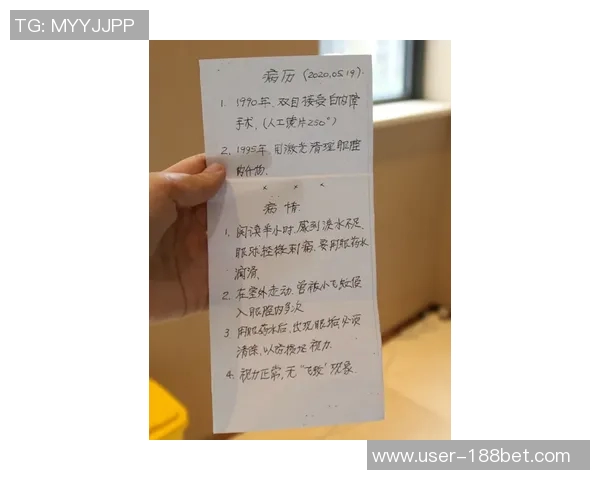 TG: MYYJJPP
病历 (2020.05.19).
1. 1990年, 双目接受白内障
手术, (人工镜片250°)
2. 1995年, 用激光清理眼腔
内什物.
× × ×
病情.
1. 阅读半小时, 感到泪水不足,
眼球轻微刺痛, 要用眼药水
润滑.
2. 在室外走动, 曾被小飞蚊侵
入眼腔内多次
3 用眼药水后, 出现眼垢必须
清除, 以方恢复视力.
4. 视力正常, 无"飞蚊"现象.
www.user-188bet.com